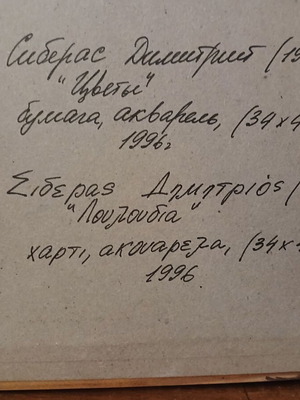 Сиберас Димитрит (19
"Цветы"
бумага, акварель, (34×4
1996г
Σιδερας Δημητριός (
"Λουλουδια"
χαρτι, ακουαρελα, (34×
1996